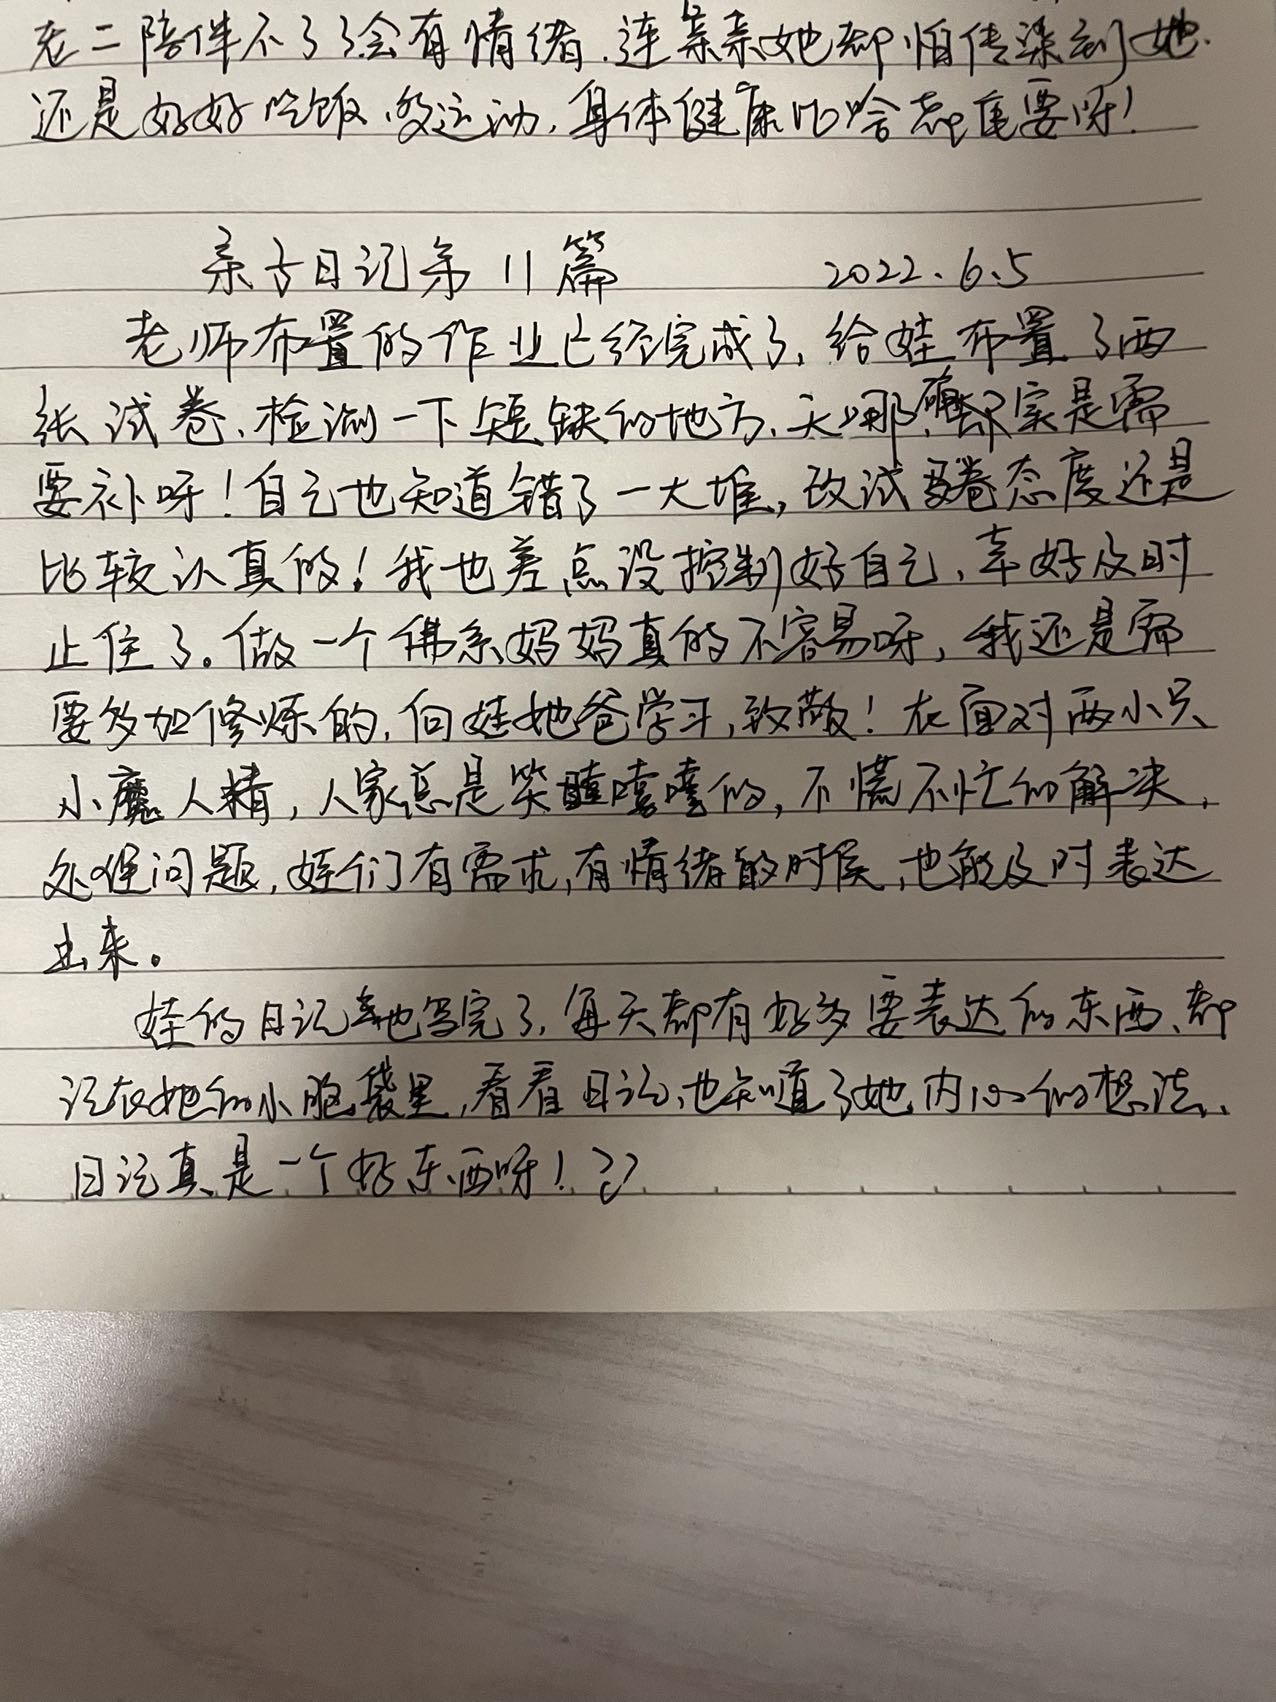 老二陪伴不了了会有情绪.连亲亲她都怕传染到她.
还是好好吃饭.多运动,身体健康比啥都重要呀!
亲子日记第11篇 2022.6.5
老师布置的作业已经完成了,给娃布置了两
张试卷、检测一下短缺的地方、天哪,确实是需
要补呀!自己也知道错了一大堆,改试卷态度还是
比较认真的!我也差点没控制好自己,幸好及时
止住了。做一个佛系妈妈真的不容易呀,我还是需
要多加修炼的,向娃她爸学习,致敬!在面对两小只
小魔人精,人家总是笑嘻嘻的,不慌不忙的解决,
处理问题,娃们有需求,有情绪的时候,也能及时表达
出来。
娃的日记也写完了,每天都有好多要表达的东西、都
记在她的小脑袋里,看看日记,也知道了她内心的想法,
日记真是一个好东西呀!